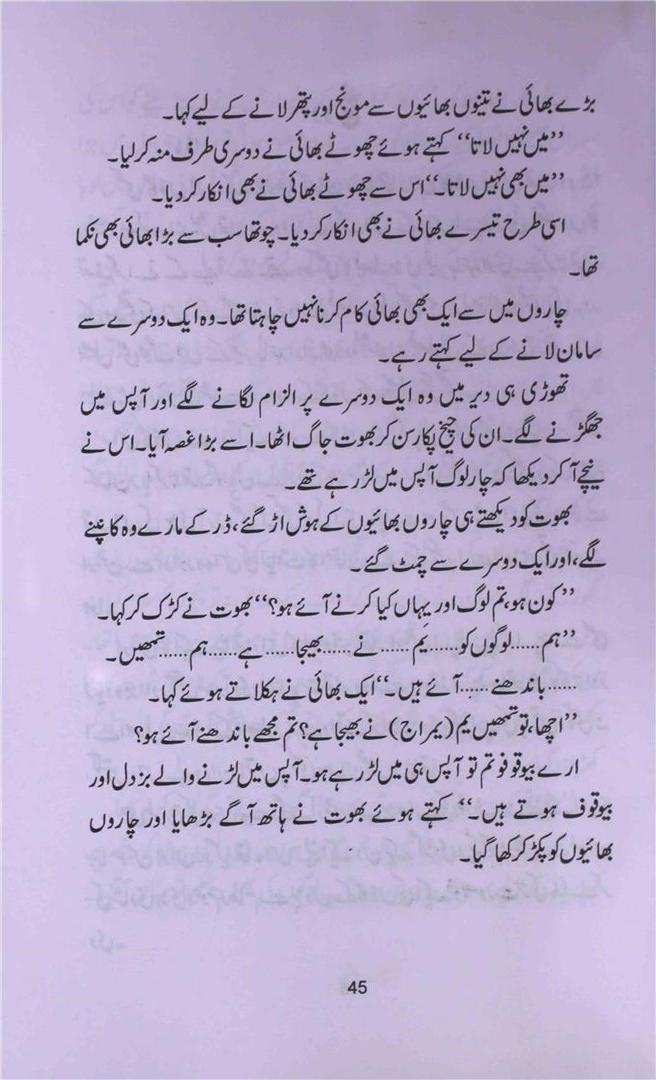 بڑے بھائی نے تینوں بھائیوں سے مونج اور پتھر لانے کے لیے کہا۔
’’میں نہیں لاتا‘‘ کہتے ہوئے چھوٹے بھائی نے دوسری طرف منہ کر لیا۔
’’میں بھی نہیں لاتا۔‘‘ اس سے چھوٹے بھائی نے بھی انکار کر دیا۔
اسی طرح تیسرے بھائی نے بھی انکار کر دیا۔ چوتھا سب سے بڑا بھائی بھی نکما
تھا۔
چاروں میں سے ایک بھی بھائی کام کرنا نہیں چاہتا تھا۔ وہ ایک دوسرے سے
سامان لانے کے لیے کہتے رہے۔
تھوڑی ہی دیر میں وہ ایک دوسرے پر الزام لگانے لگے اور آپس میں
جھگڑنے لگے۔ ان کی چیخ پکار سن کر بھوت جاگ اٹھا۔ اسے بڑا غصہ آیا۔ اس نے
نیچے آ کر دیکھا کہ چار لوگ آپس میں لڑ رہے تھے۔
بھوت کو دیکھتے ہی چاروں بھائیوں کے ہوش اڑ گئے، ڈر کے مارے وہ کانپنے
لگے، اور ایک دوسرے سے چمٹ گئے۔
’’کون ہو، تم لوگ اور یہاں کیا کرنے آئے ہو؟‘‘ بھوت نے کڑک کر کہا۔
’’ہم......لوگوں کو......یم......نے......بھیجا......ہے......ہم......تمھیں۔
......باندھنے......آئے ہیں۔‘‘ ایک بھائی نے ہکلاتے ہوئے کہا۔
’’اچھا، تو تمھیں یم (یمراج) نے بھیجا ہے؟ تم مجھے باندھنے آئے ہو؟
ارے بیوقوفو تم تو آپس ہی میں لڑ رہے ہو۔ آپس میں لڑنے والے بزدل اور
بیوقوف ہوتے ہیں۔‘‘ کہتے ہوئے بھوت نے ہاتھ آگے بڑھایا اور چاروں
بھائیوں کو پکڑ کر کھا گیا۔
45